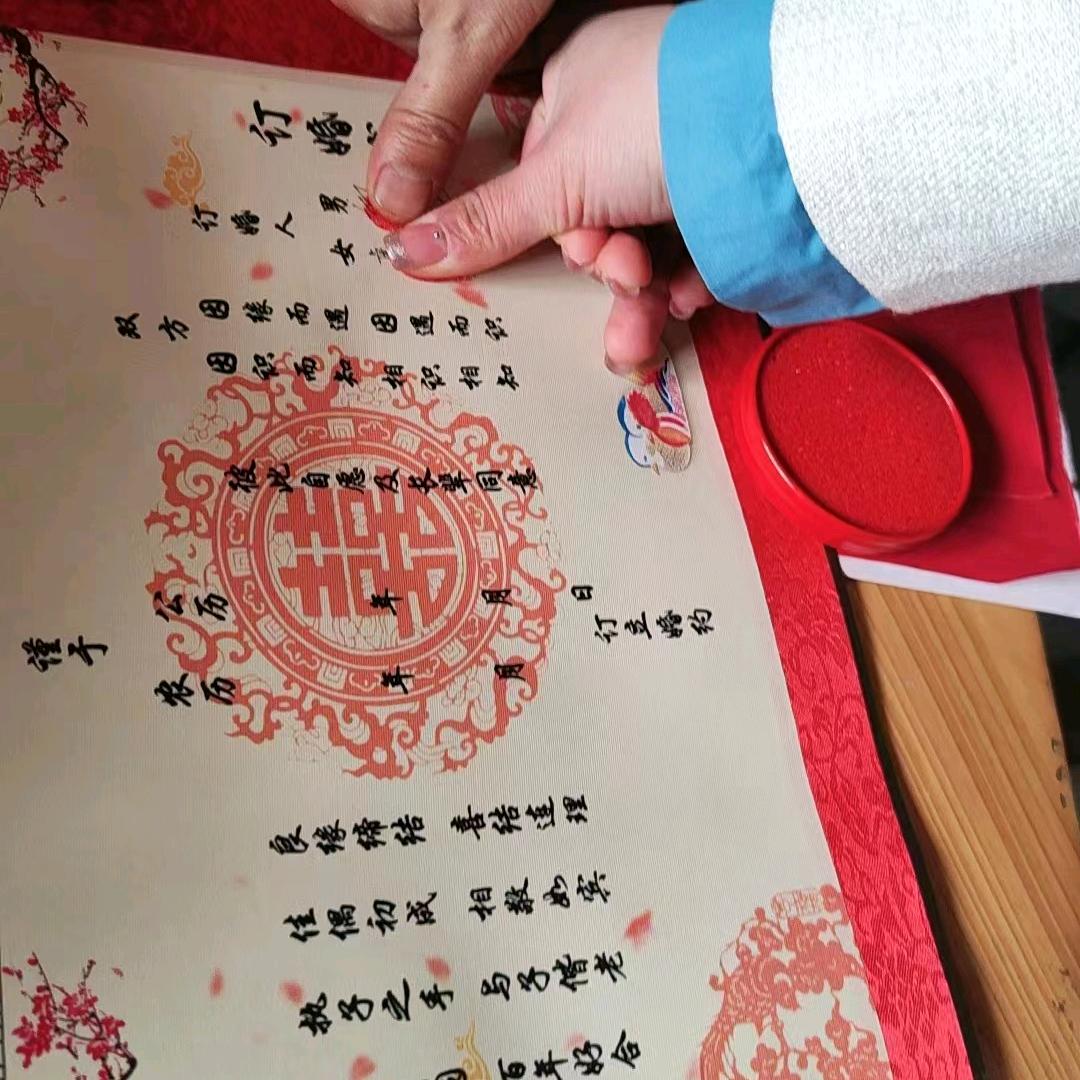 订婚
订婚人 男
女
双方因缘而遇 因遇而识
因识而知 相识相知
彼此自愿及长辈同意
谨于
公历 年 月 日
农历 年 月
订立婚约
良缘缔结 喜结连理
佳偶初成 相敬如宾
执子之手 与子偕老
百年好合